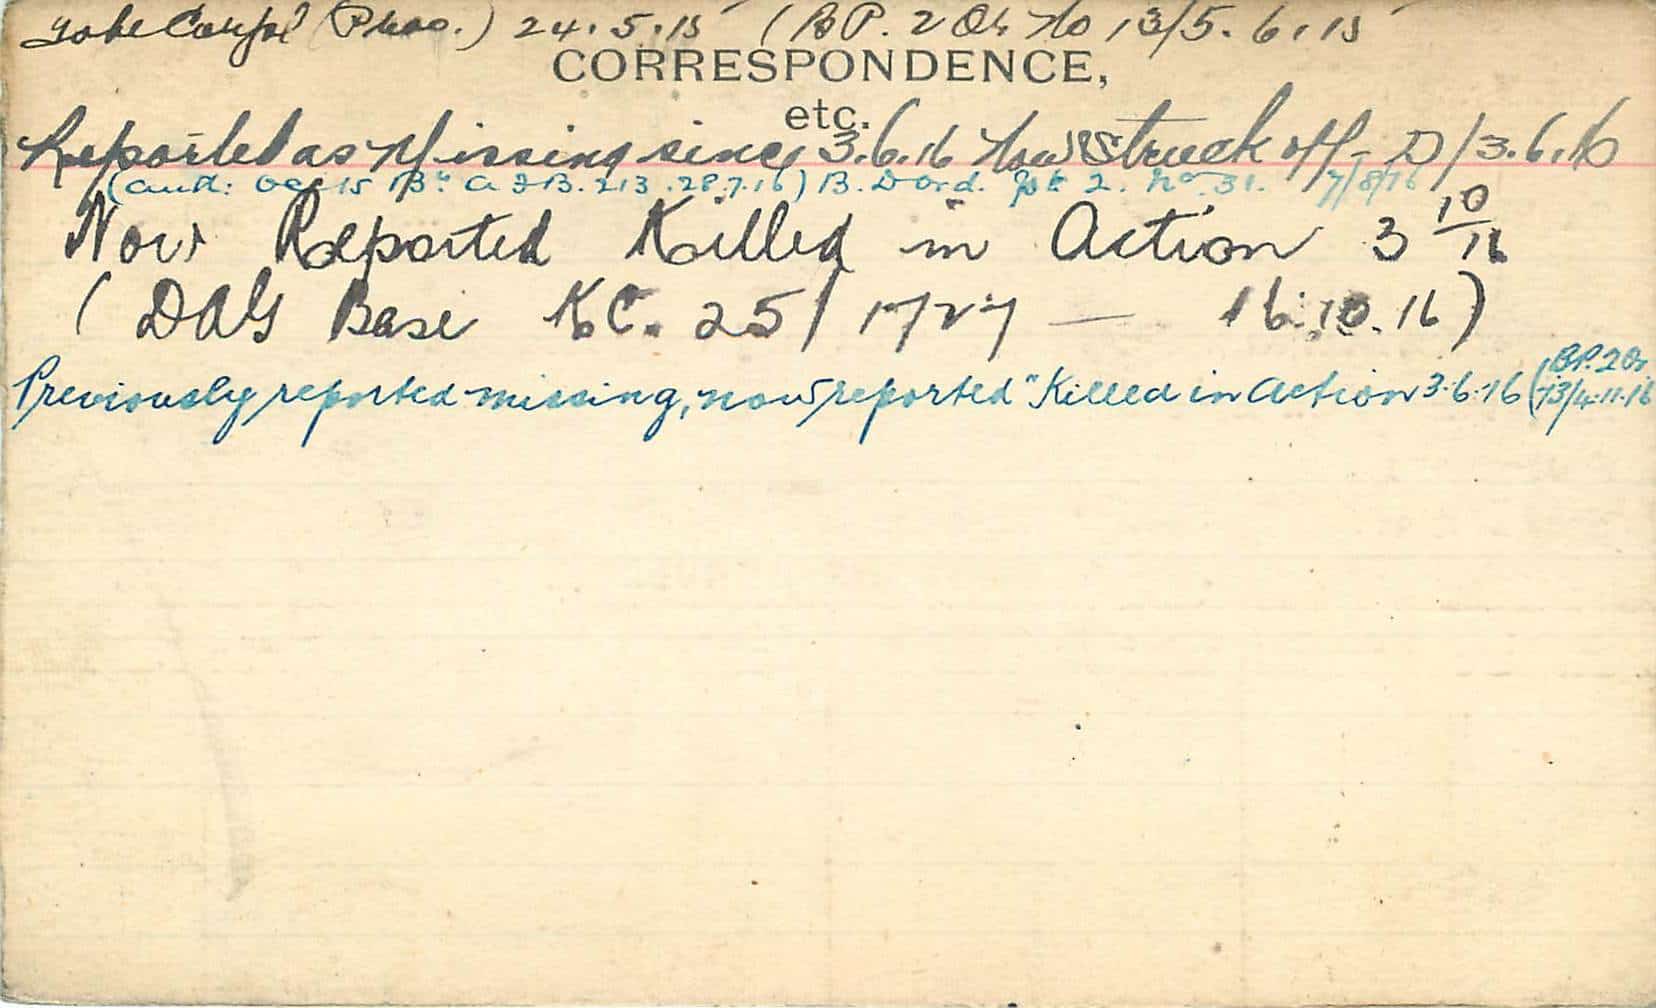 to be Corpl (Prov.) 24.5.15 (BP. 2 Or No 13/5.6.15
CORRESPONDENCE,
etc.
Reported as Missing since 3.6.16 Now Struck off - D/3.6.16
(Auth: OC 15 Bn A 213.28.7.16) B. D Ord. Pt 2. No 31. 7/8/16
Now Reported Killed in Action 3 10/16
(DAG Base KC. 25/1727 — 16.10.16)
Previously reported missing, now reported "Killed in Action 3.6.16 (BP. 2 Or
13/4.11.16